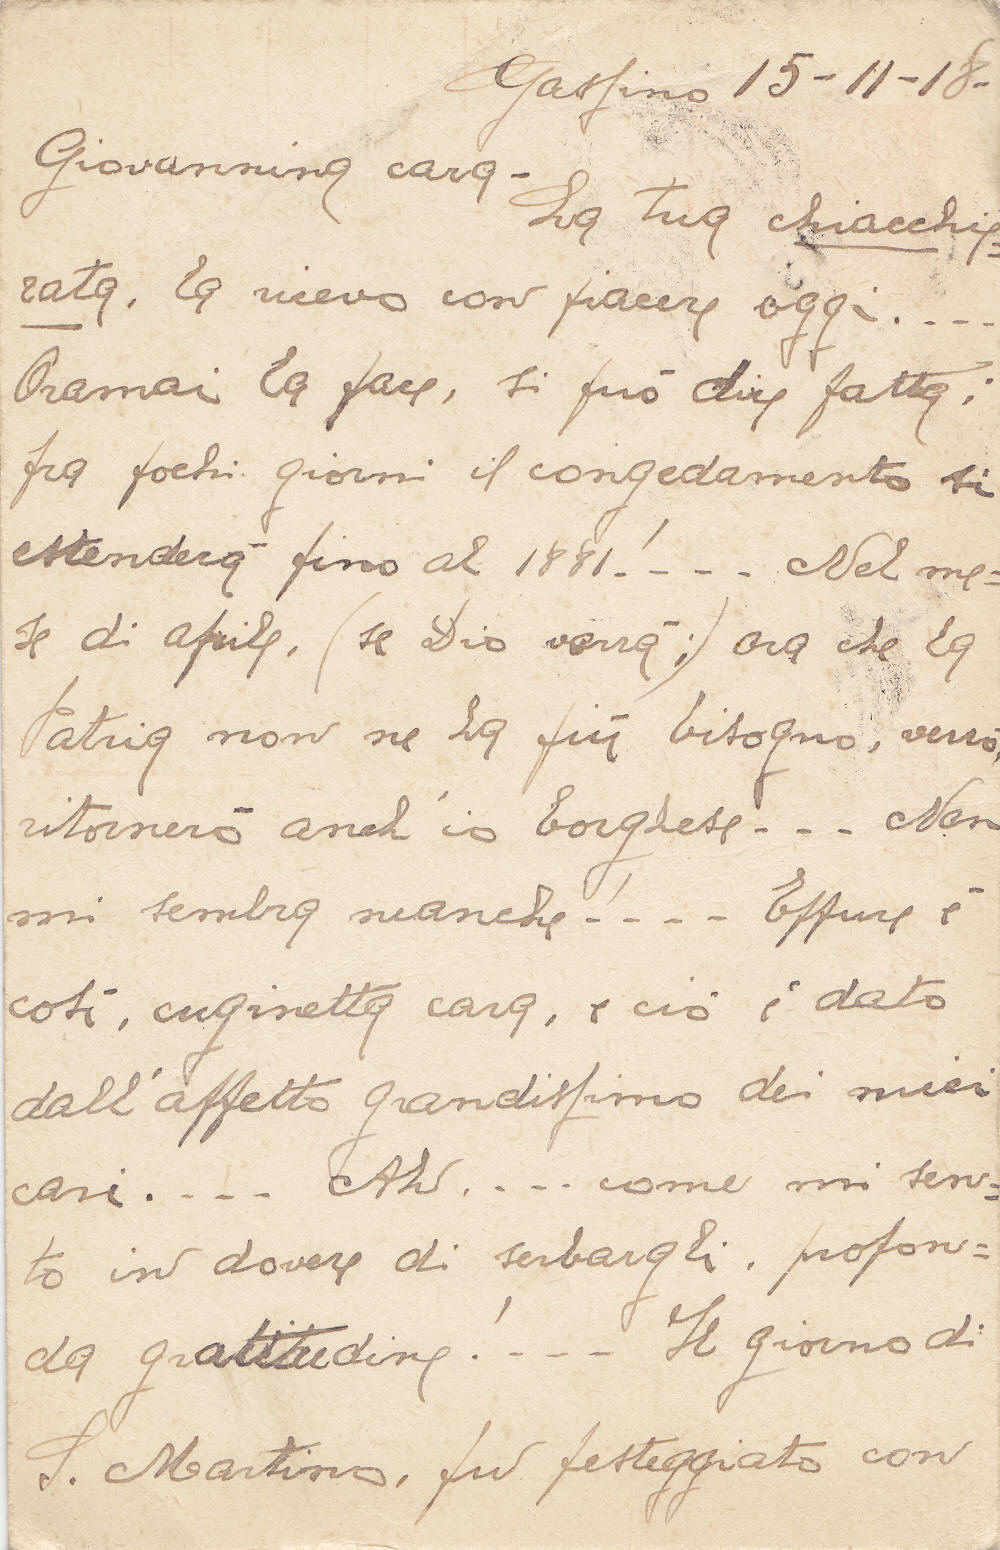 Gassino 15-11-18-
Giovannina cara-
La tua chiacchie=
rata, la ricevo con piacere oggi. - - -
Oramai la pace, si può dire fatta;
fra pochi giorni il congedamento si
estenderà fino al 1881! - - - - Nel me=
se di aprile, (se Dio vorrà;) ora che la
Patria non ne ha più bisogno, verrò,
ritornerò anch'io borghese - - - Non
mi sembra neanche! - - - - Eppure è
così, cuginetta cara, e ciò è dato
dall'affetto grandissimo dei miei
cari. - - - - Ah. - - - come mi sen=
to in dovere di serbargli, profon=
da gratitudine! - - - - Il giorno di
S. Martino, fu festeggiato con